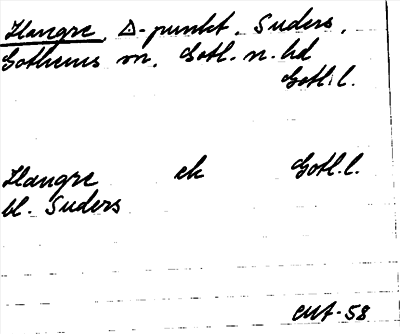 Hangre, Δ-punkt. Suders,
Gothems sn, Gotl. n. hd
Gotl. l.
Hangre ek Gotl. l.
bl. Suders
-58